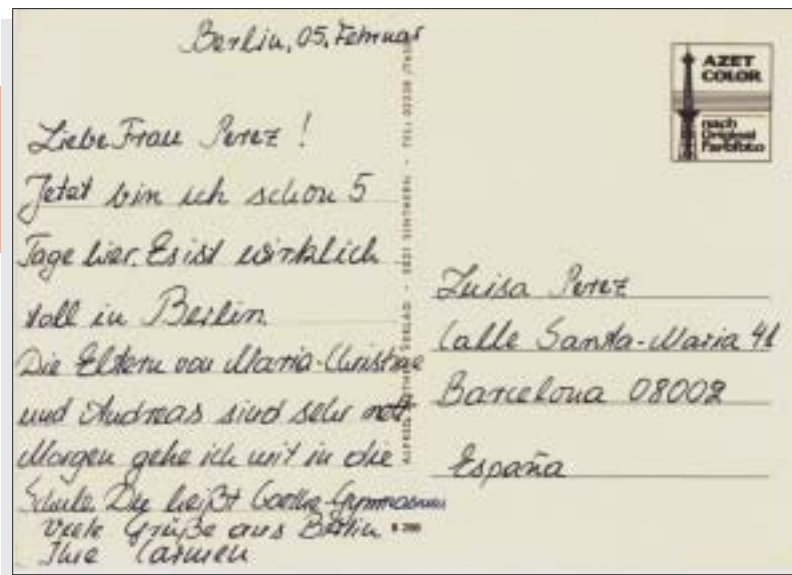 Berlin, 05. Februar
Liebe Frau Perez !
Jetzt bin ich schon 5
Tage hier. Es ist wirklich
toll in Berlin.
Die Eltern von Maria-Christine
und Andreas sind sehr nett
Morgen gehe ich mit in die
Schule. Die heißt Goethe Gymnasium
Viele Grüße aus Berlin
Ihre Carmen
AZET
COLOR
nach
Original
Farbfoto
Luisa Perez
Calle Santa-Maria 41
Barcelona 08002
España